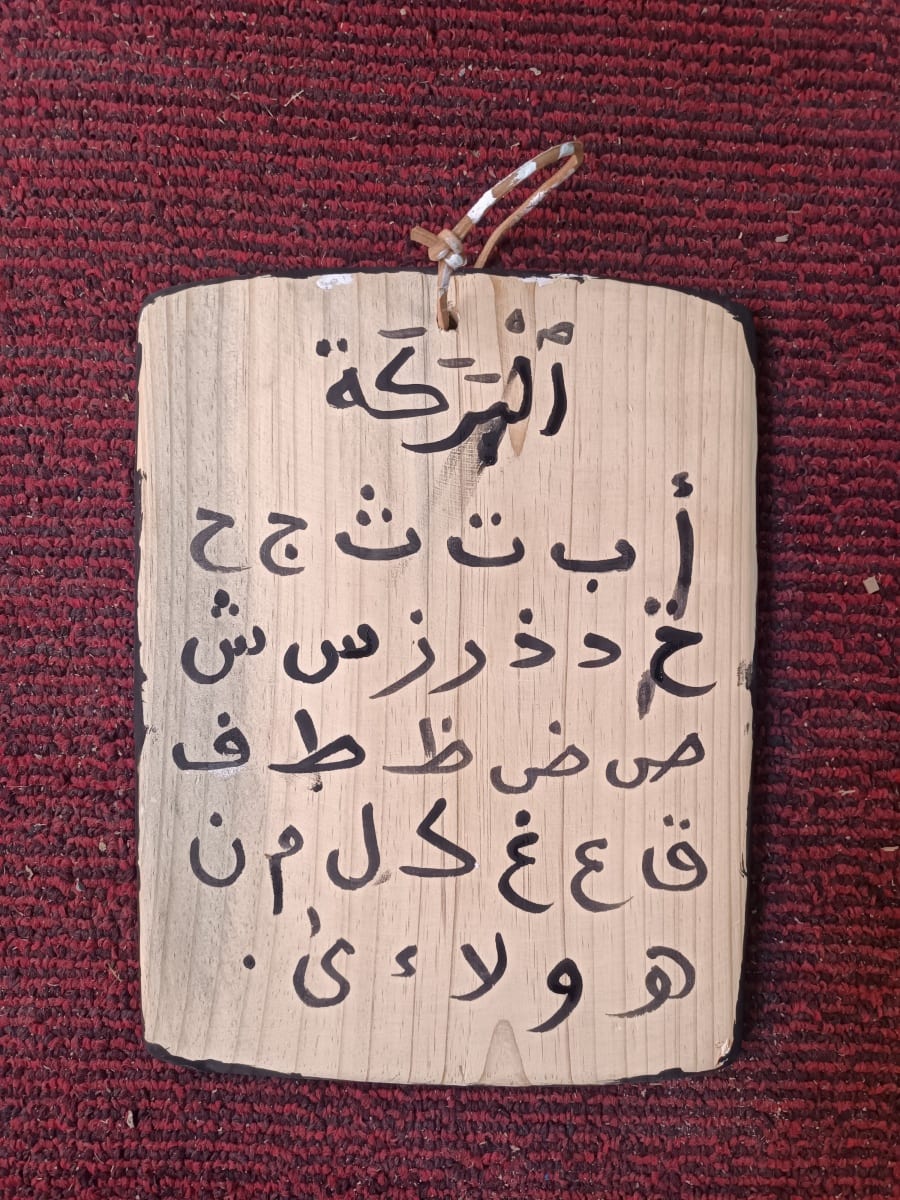 ٱلْبَرَكَة
أ ب ت ث ج ح
خ د ذ ر ز س ش
ص ض ظ ط ف
ق ع غ ك ل م ن
هو و لا ء ىٰ .